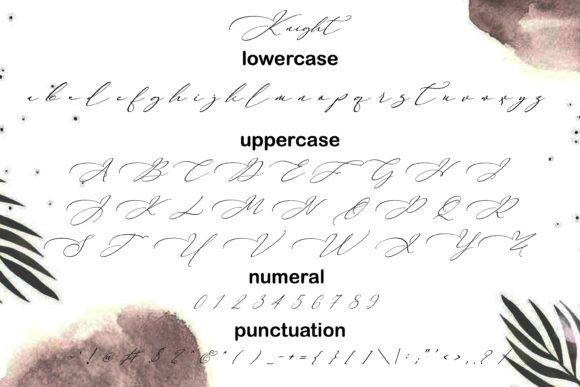 Knight
lowercase
a b c d e f g h i j k l m n o p q r s t u v w x y z
uppercase
A B C D E F G H I
J K L M N O P Q R
S T U V W X Y Z
numeral
0 1 2 3 4 5 6 7 8 9
punctuation
~ ` ! @ # $ % ^ & * ( ) _ - + = { } [ ] \ | : ; " ' < > , . ? /